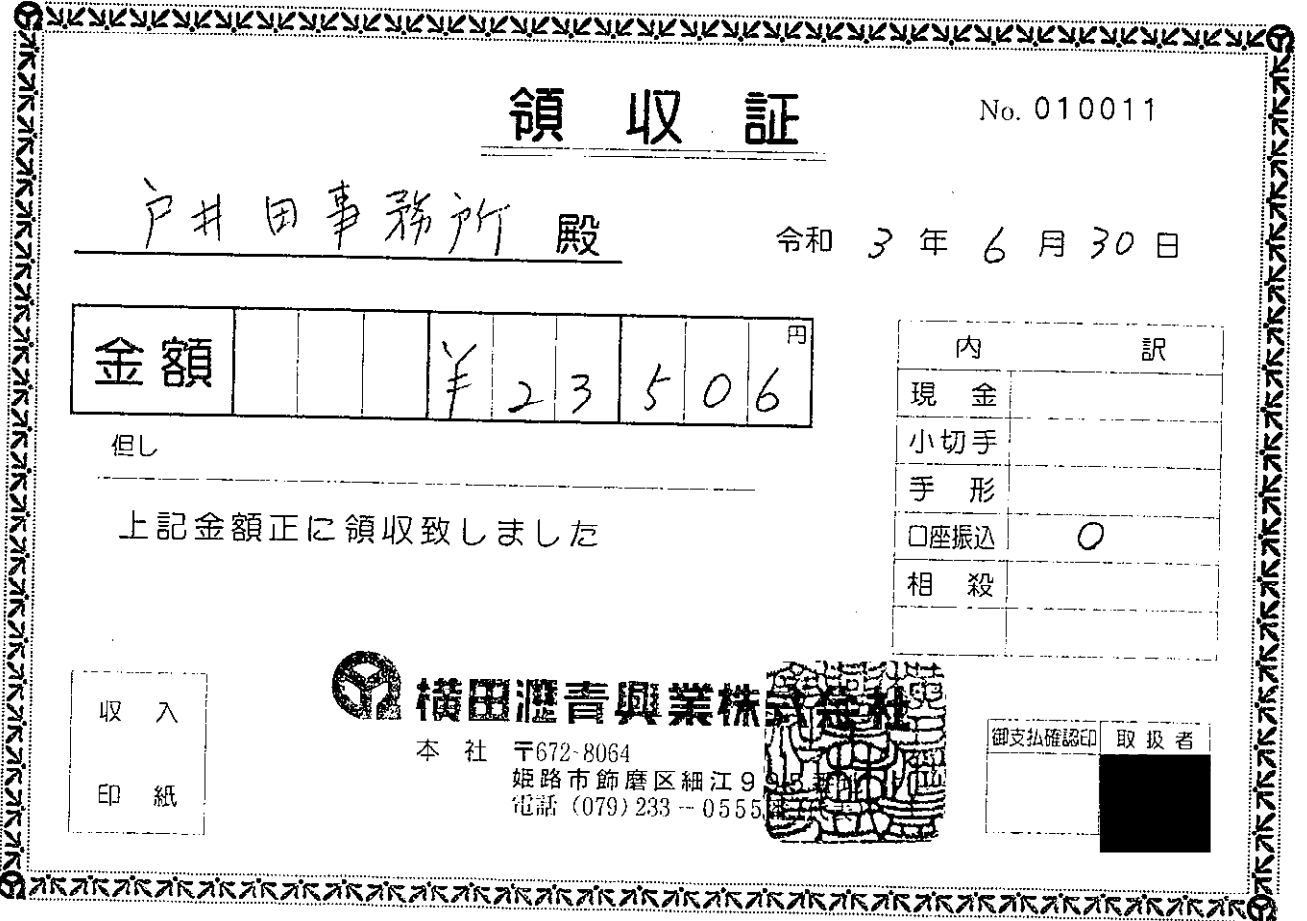 領収証
No. 010011
戸井田事務所 殿
令和 3 年 6 月 30 日
金額 ¥23506円
但し
上記金額正に領収致しました
内訳
現金
小切手
手形
口座振込 ○
相殺
収入
印紙
横田瀝青興業株式会社
本社 〒672-8064
姫路市飾磨区細江995番地
電話 (079) 233-0555
御支払確認印 取扱者